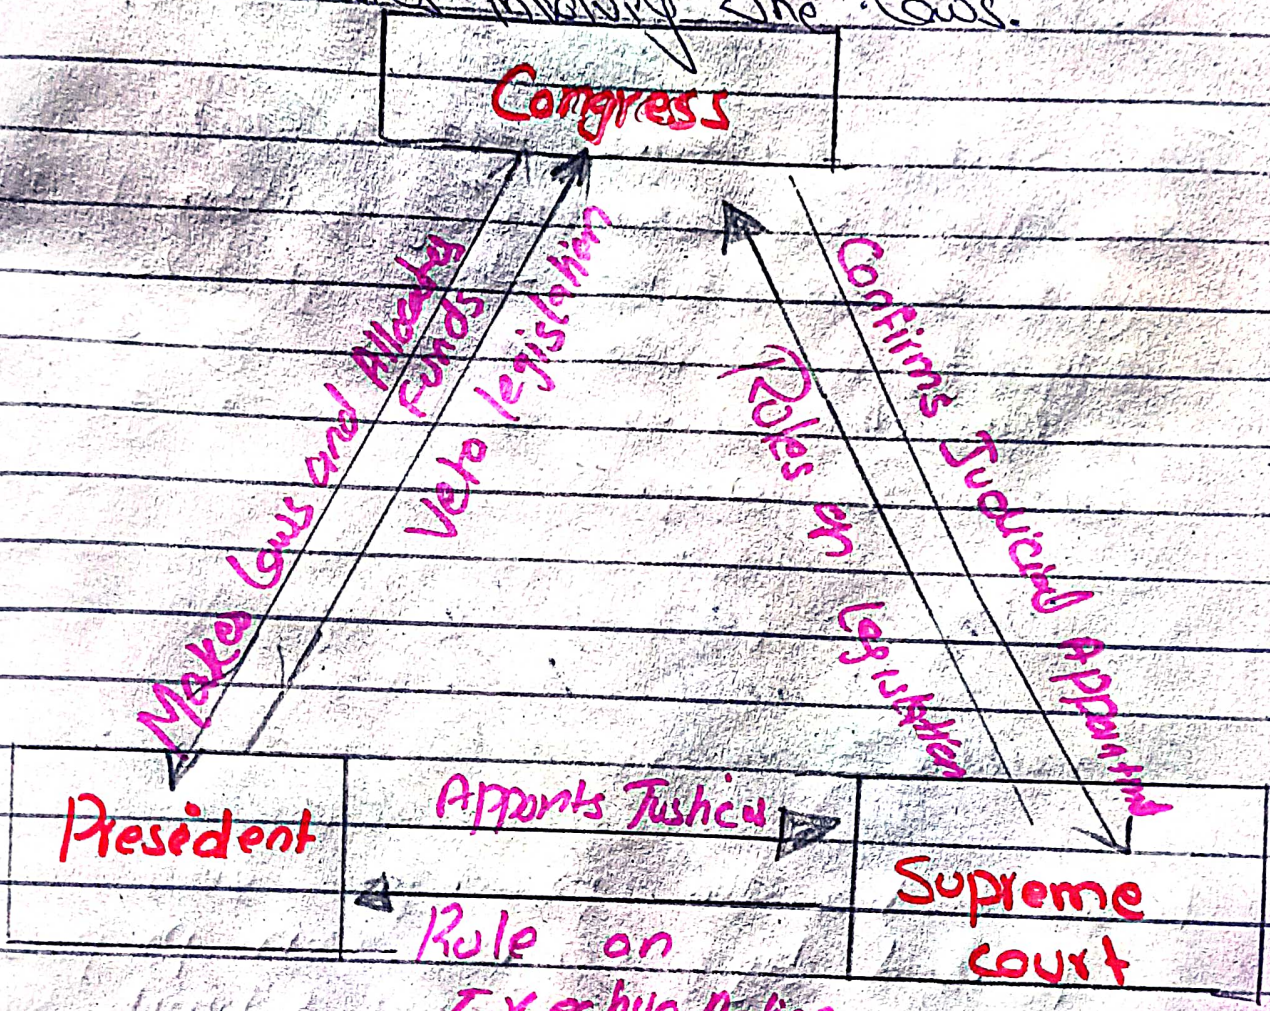 the Laws.
Congress
Makes Laws and Allocates
Funds
Veto legislation
Rules on Legislation
Confirms Judicial
President
Appoints Justices
Rule on
Supreme
court